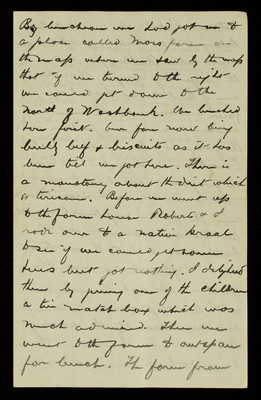 By luncheon we had got on to
a place called Moos farm on
the map where we saw by the map
that if we turned to the right
we could get down to the
north of Westbank. We lunched
here first. Our fare now being
bully beef & biscuits as it has
been till we got here. There is
a monotony about the diet which
is tiresome. Before we went up
to the farm house Roberts & I
rode over to a native kraal
to see if we could get some
but got nothing. I delighted
them by giving one of the children
a tin match box which was
much admired. Then we
went to the farm to outspan
for lunch. The farm